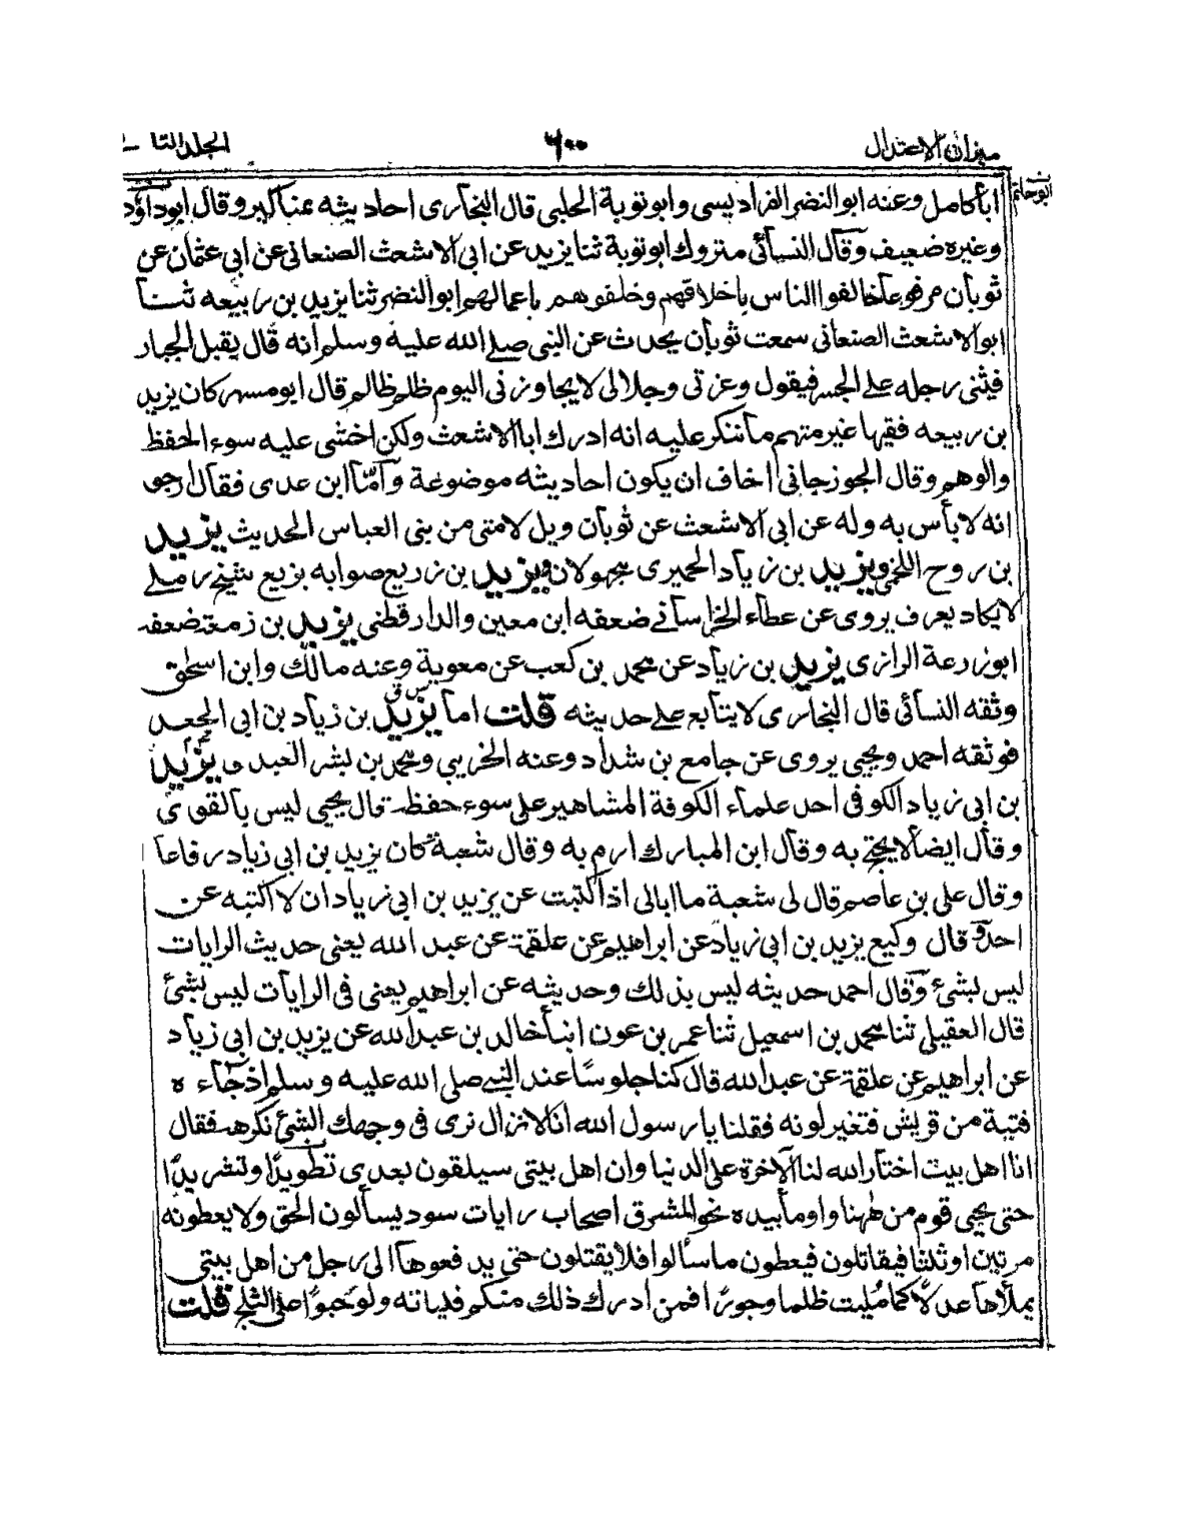 ميزان الاعتدال
٦٠٠
الجلد الثا
ابو حاتم
ابا كامل وعنه ابو النضر الفراديسى وابو توبة الحلبى قال البخارى احاديثه مناكير وقال ابو داؤد
وغيره ضعيف وقال النسائى متروك ابو توبة ثنا يزيد عن ابى الاشعث الصنعانى عن ابى عثمان عن
ثوبان مرفوعا خالفوا الناس باخلاقهم وخلفوهم باعمالهم ابو النضر ثنا يزيد بن ربيعه ثنا
ابو الاشعث الصنعانى سمعت ثوبان يحدث عن النبى صلے الله عليه وسلم انه قال يقبل الجبار
فيثنى رجله علے الجسر فيقول وعزتى وجلالى لا يجاوزنى اليوم ظلم ظالم قال ابو مسهر كان يزيد
بن ربيعه فقيها غير متهم ما ننكر عليه انه ادرك ابا الاشعث ولكن اخشى عليه سوء الحفظ
والوهم وقال الجوزجانى اخاف ان يكون احاديثه موضوعة وأمّا ابن عدى فقال ارجو
انه لا بأس به وله عن ابى الاشعث عن ثوبان ويل لامتى من بنى العباس الحديث يزيد
بن روح اللخمى ويزيد بن زياد الحميرى مجهولان ويزيد بن زريع صوابه بزيع شيخ رملے
لا يكاد يعرف يروى عن عطاء الخراسانے ضعفه ابن معين والدارقطنى يزيد بن زمعة ضعفه
ابو زرعة الرازى يزيد بن زياد عن محمد بن كعب عن معوية وعنه مالك وابن اسحٰق
وثقه النسائى قال البخارى لا يتابع علے حديثه قلت اما يزيد بن زياد بن ابى الجعد
فوثقه احمد ويحيى يروى عن جامع بن شداد وعنه الخريبي ومحمد بن بشر العبدى يزيد
بن ابى زياد الكوفى احد علماء الكوفة المشاهير على سوء حفظه قال يحيى ليس بالقوى
وقال ايضا لا يحتج به وقال ابن المبارك ارم به وقال شعبة كان يزيد بن ابى زياد رفاعا
وقال على بن عاصم قال لى شعبة ما ابالى اذا كتبت عن يزيد بن ابى زياد ان لا اكتبه عن
احد و قال وكيع يزيد بن ابى زياد عن ابراهيم عن علقمة عن عبد الله يعنى حديث الرايات
ليس بشئ وقال احمد حديثه ليس بذلك وحديثه عن ابراهيم يعنى فى الرايات ليس بشئ
قال العقيلى ثنا محمد بن اسمعيل ثنا عمر بن عون انبأ خالد بن عبد الله عن يزيد بن ابى زياد
عن ابراهيم عن علقمة عن عبد الله قال كنا جلوسًا عند النبي صلى الله عليه وسلم اذ جاءه
فتية من قريش فتغير لونه فقلنا يا رسول الله انا لا نزال نرى فى وجهك الشئ نكرهه فقال
انا اهل بيت اختار الله لنا الآخرة على الدنيا وان اهل بيتى سيلقون بعدى تطويدًا وتشريدًا
حتى يجيى قوم من ههنا واومأ بيده نحو المشرق اصحاب رايات سود يسألون الحق ولا يعطونه
مرتين او ثلثا فيقاتلون فيعطون ما سألوا فلا يقتلون حتى يدفعوها الى رجل من اهل بيتى
يملأها عدلا كما مُليت ظلما وجورًا فمن ادرك ذلك منكم فلياته ولو حَبوًا على الثلج قلت